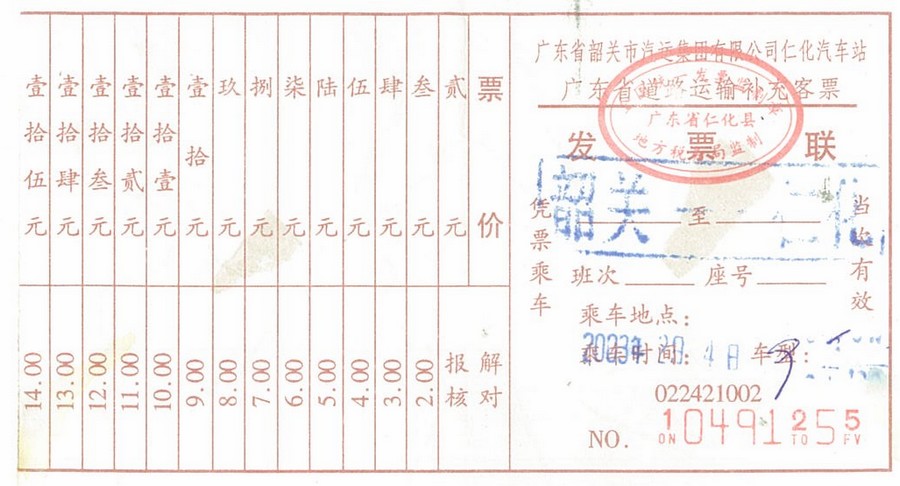 广东省韶关市汽运集团有限公司仁化汽车站
广东省道路运输补充客票
广东省仁化县
地方税务局监制
发票联
韶关
仁化
凭票乘车
至
当次有效
班次 座号
乘车地点：
乘车时间： 车型：
022421002
NO.
1049125
票价 贰元 叁元 肆元 伍元 陆元 柒元 捌元 玖元 壹拾元 壹拾壹元 壹拾贰元 壹拾叁元 壹拾肆元 壹拾伍元
解对 报核 2.00 3.00 4.00 5.00 6.00 7.00 8.00 9.00 10.00 11.00 12.00 13.00 14.00